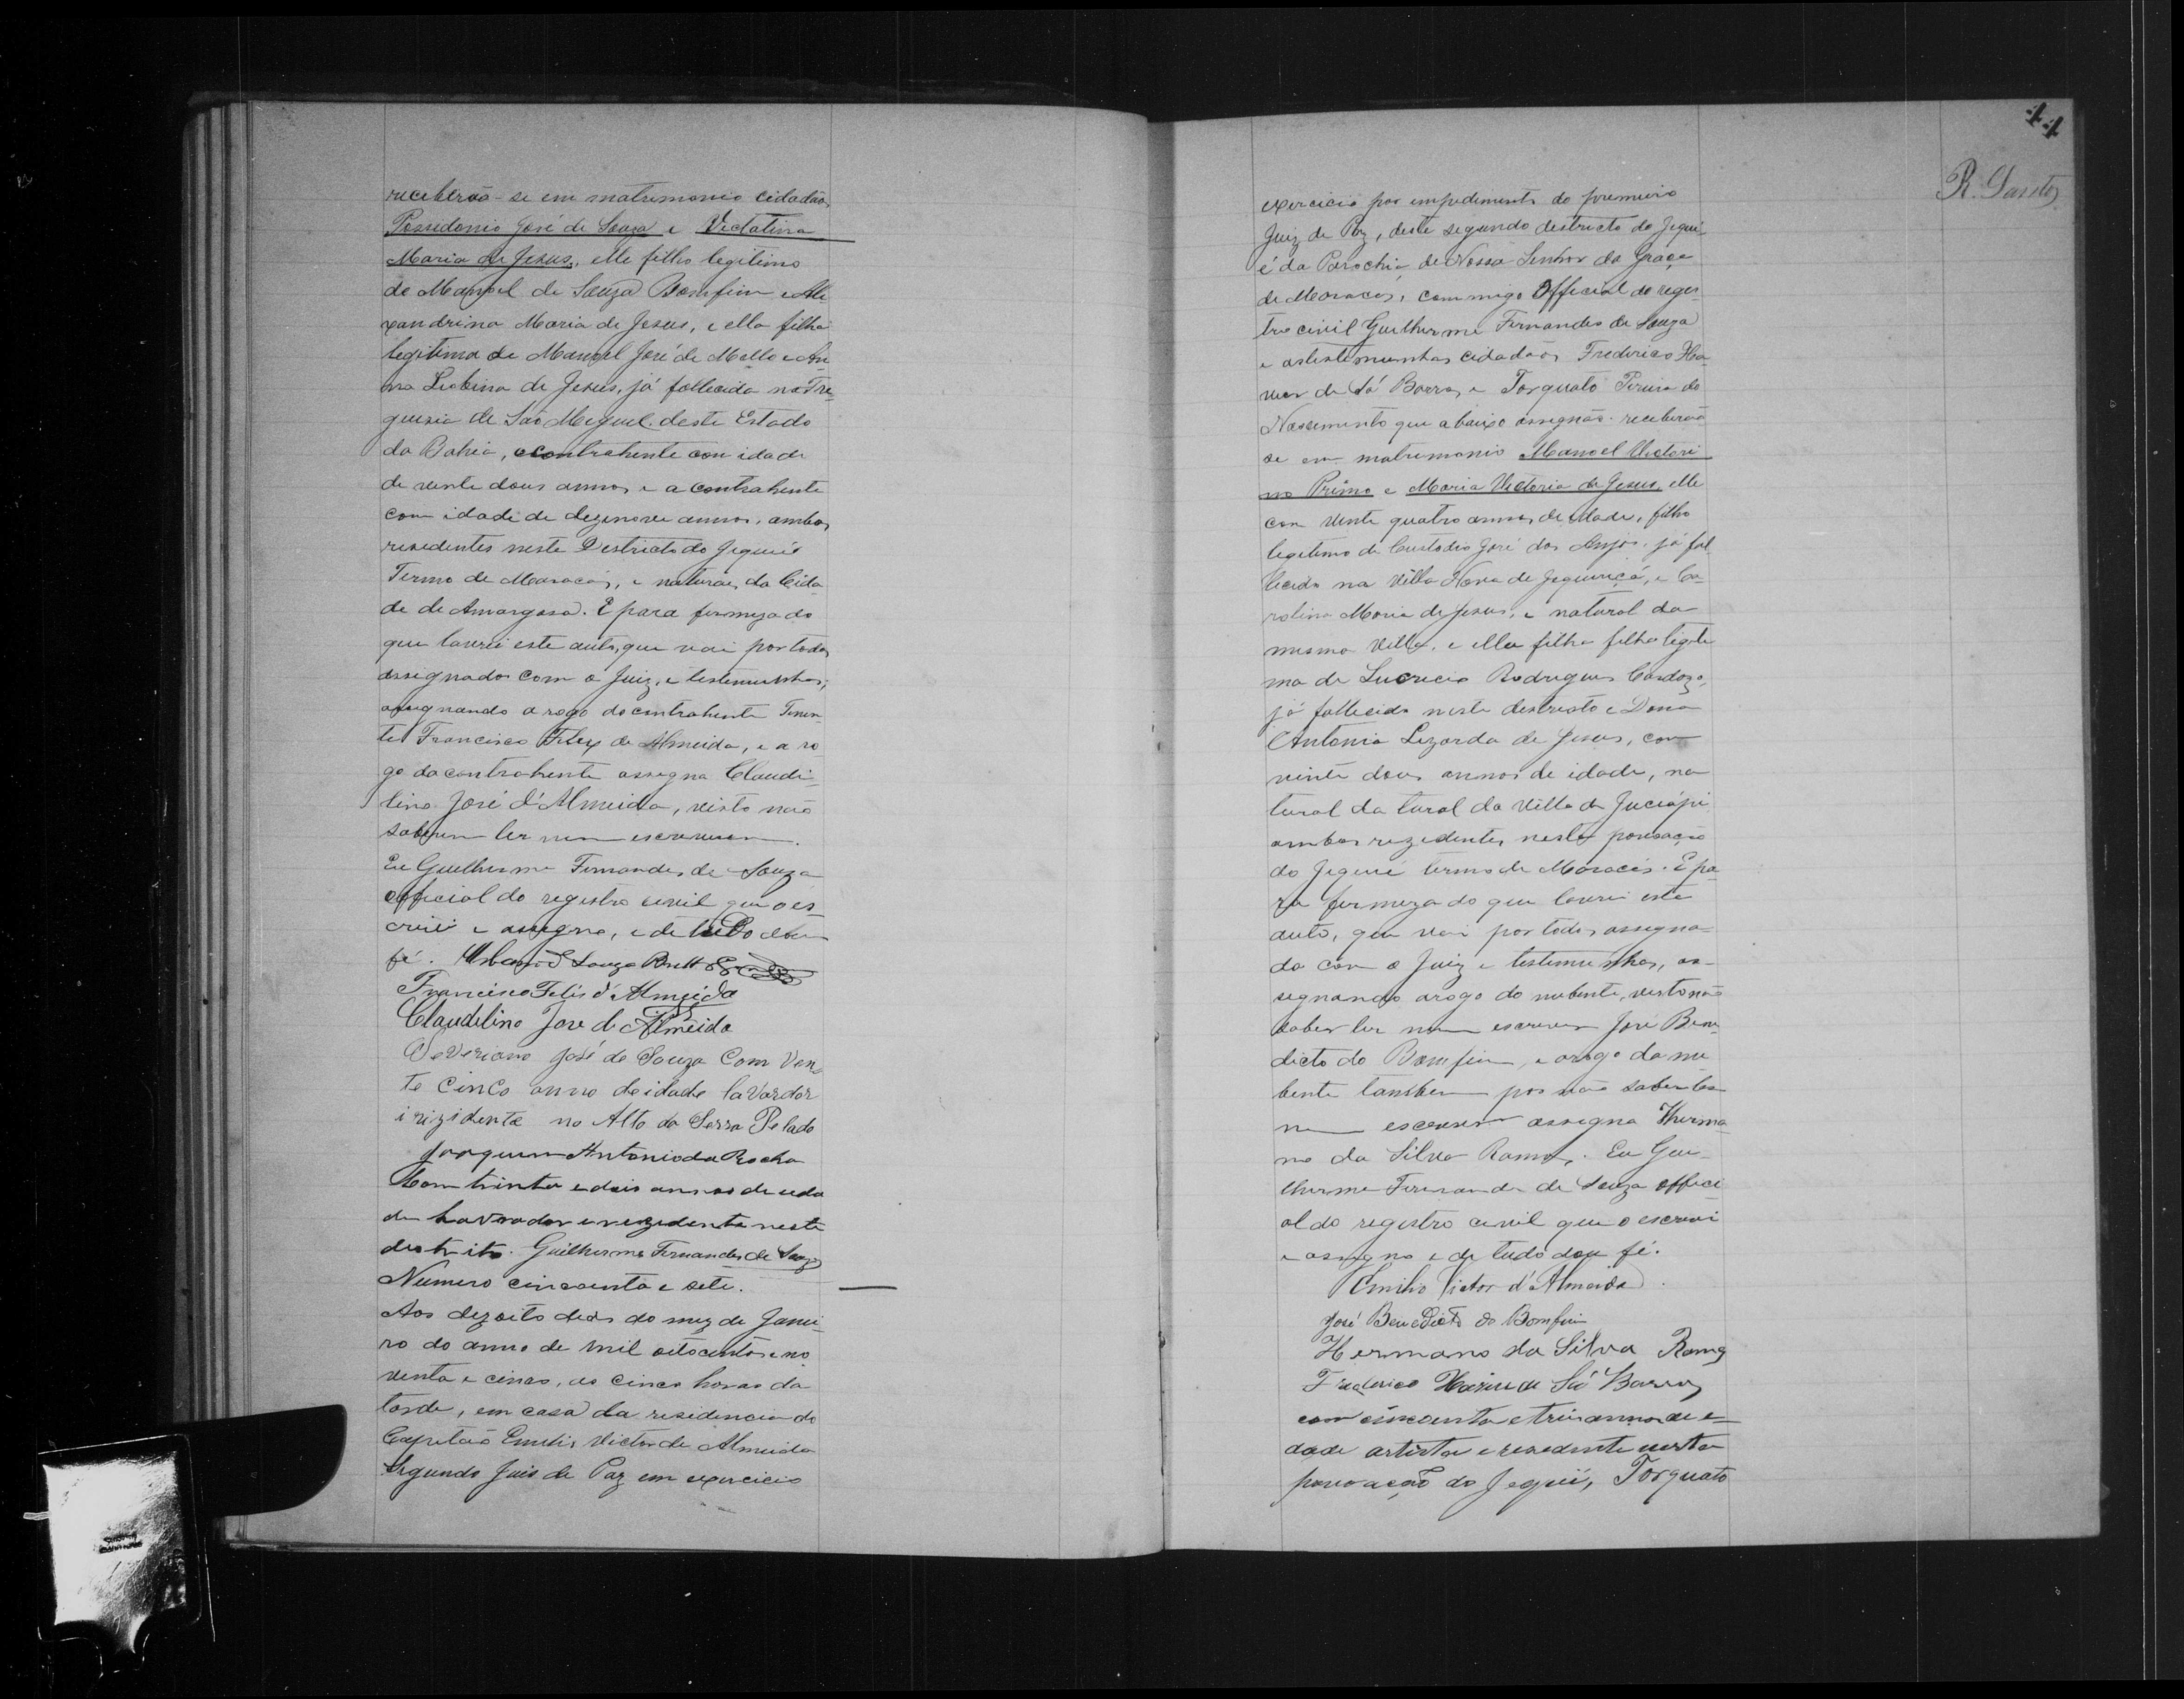 receberão-se em matrimonio cidadão
Possidonio José de Souza e Victalina
Maria de Jesus, elle filho legitimo
de Manoel de Souza Bomfim e Ale
xandrina Maria de Jesus, e ella filha
legitima de Manoel José de Mello e An
na Liobina de Jesus, já fallecida na Fre
guesia de São Miguel deste Estado
da Bahia, o contrahente com idade
de vinte dous annos e a contrahente
com idade de dezenove annos, ambos
residentes neste Districto do Jequié
Termo de Maracás, e naturaes da Cida
de de Amargosa. E para firmeza do
que lavrei este auto, que vai por todos
assignados com o Juiz, e testemunhas;
assignando a rogo do contrahente Tenen
te Francisco Felex de Almeida, e a ro
go da contrahente assigna Claudi
lino José d'Almeida, visto não
saberem ler nem escreverem.
Eu Guilherme Fernandes de Souza
official do registro civil que o es
crevi e assigno, e de tudo dou
fé. Urbano Souza Britto
Francisco Felis d'Almeida
Claudilino Jose de Almeida
Severiano José de Souza Com Ven
te Cinco anno de idade lavardor
i rizidente no Alto da Serra Pelado
Joaquim Antonio da Rocha
Com trinta e dois annos de eda
de Lavrador e rezidente neste
destrito. Guilherme Fernandes de Souza
Numero cincoenta e sete.
Aos dezoito dias do mez de Janei
ro do anno de mil oitocentos e no
venta e cinco, as cinco horas da
tarde, em casa da residencia do
Capitão Emilio Victor de Almeida
Segundo Juis de Paz em exercicio
44
R. Santos
exercicio por empedimento do premeiro
Juiz de Paz, deste segundo destricto do Jequi
é da Parochia de Nossa Senhor da Graça
de Maracás, commigo Official do regis
tro civil Guilherme Fernandes de Souza
e as testemunhas cidadãos Frederico Xa
vier de Sá Barros e Torquato Pereira do
Nascimento que abaixo assignão receberão
se em matrimonio Manoel Victori
no Primo e Maria Victoria de Jesus, elle
com vinte quatro annos de idade, filho
legitimo de Custodio José dos Anjos, já fal
lecido na Villa Nova de Jequiriçá, e Ca
rolina Maria de Jesus, e natural da
mesma Villa, e ella filha filha legiti
ma de Lucrecio Rodrigues Cardozo,
já fallecido neste destricto e Dona
Antonia Lizarda de Jesus, com
vinte dous annos de idade, na
tural da tural da Villa de Juciápi
ambos rezidentes nesta povoação
do Jequié termo de Maracás. E pa
ra firmeza do que lavrei este
auto, que vai por todos assigna
do com o Juiz e testemunhas, as
segnando arogo do nubente, visto não
saber ler nem escrever José Bene
dicto do Bomfim, e arogo da nu
bente tambem por não saber ler
nem escrever assigna Herma
no da Silva Ramos. Eu Gui
lherme Fernandes de Souza offici
al do registro civil que o escrevi
e assigno e de tudo dou fé.
Emilio Victor d'Almeida.
José Benedicto do Bomfim
Hermano da Silva Ramos
Frederico Xavier de Sá Barros
com cincoenta e tris annos de e
dade artista e resedente nesta
povoação do Jequié, Torquato